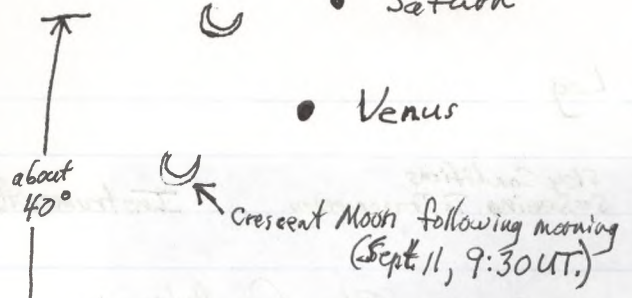 Saturn
Venus
about
40°
Crescent Moon following morning
(Sept. 11, 9:30 UT.)